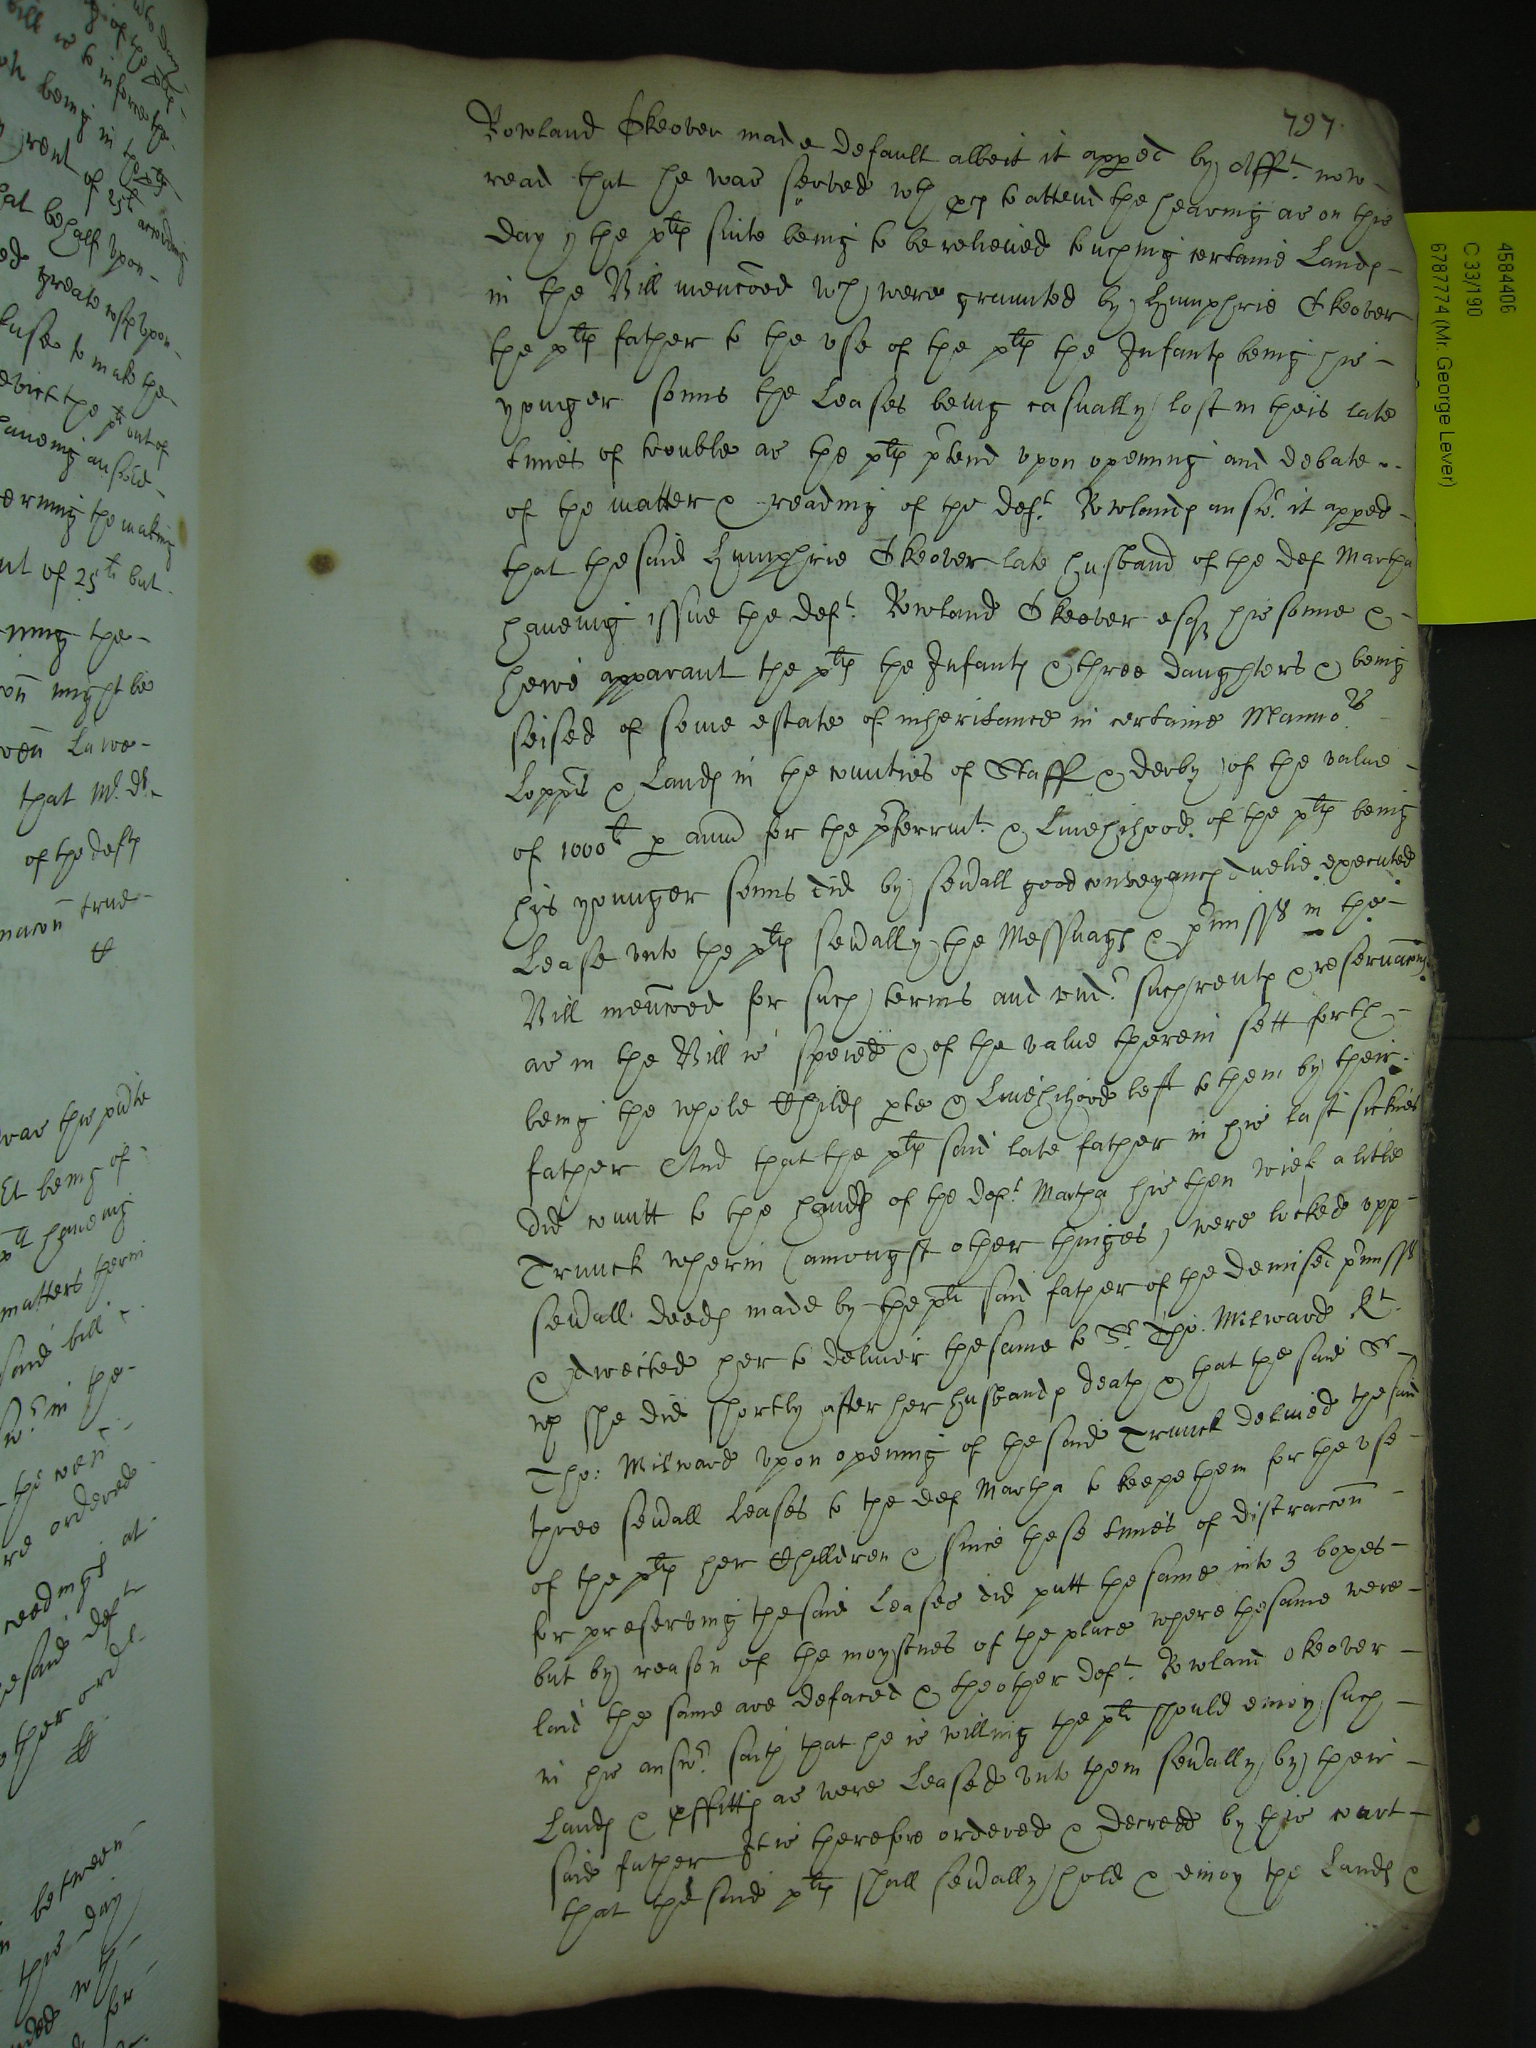 797.
Rowland Okeover made default albeit it apped by Afft. now
read that he was served wth pces to attend the hearing as on this
day & the pltes suite being to be relieued touching certaine Landes
in the Bill mencoed wch were graunted by Humphrie Okeover
the pltes father to the vse of the pltes the Infantes being his
younger sonns the Leases being casually lost in theis late
times of trouble as the pltes ptend vpon opening and debate
of the matter & reading of the deft. Rowlandes answ. it apped
that the said Humphrie Okeover late husband of the def Martha
haueing issue the deft. Rowland Okeover esqr his sonne &
heire apparant the pltes the Infantes & three daughters & being
seised of some estate of inheritance in certaine Manno.rs
Lopps & Landes in the counties of Staff & derby of the value
of 1000li p annu for the pferrmt. & Liuelihood of the pltes being
his younger sonns did by seuall good conveyances duelie executed
Lease vnto the pltes seually the Messuages & pmisss in the
Bill mencoed for such terms and vnd. such rentes & reservacons
as in the Bill is specied & of the value therein sett forth
being the whole Childes pte & Liuelihood left to them by their
father And that the pltes said late father in his last sicknes
did comitt to the handes of the deft. Martha his then wief a little
Trunck wherin (amongst other thinges) were locked vpp
seuall deedes made by the plts said father of the demised pmisss
& directed her to deliuer the same to Sr. Tho: Milward Kt.
wch she did shortly after her husbandes death & that the said Sr
Tho: Milward vpon opening of the said Trunck deliued the said
three seuall Leases to the def Martha to keepe them for the vse
of the pltes her Children & since these times of distraccon
for preserving the said Leases did putt the same into 3 boxes
but by reason of the moystnes of the place where the same were
laid the same are defaced & the other deft. Rowland Okeover
in his answ. saith that he is willing the plts should enioy such
Landes & pffittes as were Leased vnto them seually by their
said father It is therefore ordered & decreed by this court
that the said pltes shall seually hold & enioy the Landes &
4584406
C 33/190
6787774 (Mr. George Lever)